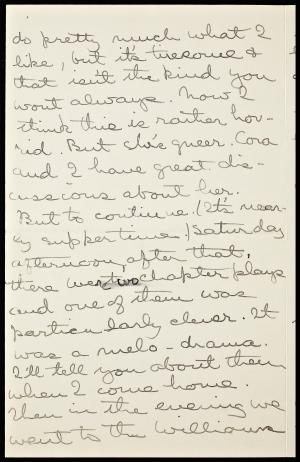 do pretty much what I
like, but it's tiresome &
that isn't the kind you
want always. Now I
think this is rather hor-
rid. But she's queer. Cora
and I have great dis-
cussions about her.
But to continue. (It's near-
ly supper time.) Saturday
afternoon, after that,
there were two chapter plays
and one of them was
particularly clever. It
was a melo-drama.
I'll tell you about them
when I come home.
Then in the evening we
went to the Williams